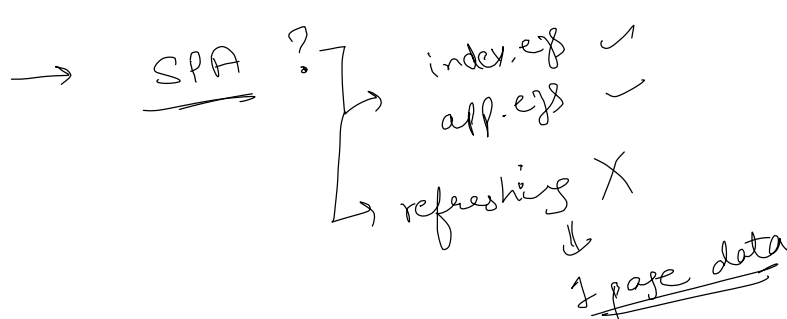 → SPA ?
index.ejs ✓
app.ejs ✓
refreshing X
1 page data